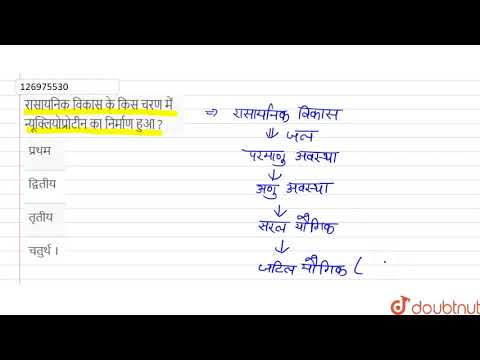 126975530
रासायनिक विकास के किस चरण में
न्यूक्तियोप्रोटीन का निर्माण हुआ ?
प्रथम
द्वितीय
तृतीय
चतुर्थ ।
⇒ रासायनिक विकास
⇓ जल
परमाणु अवस्था
↓
अणु अवस्था
↓
सरल यौगिक
↓
जटिल यौगिक (
doubtnut